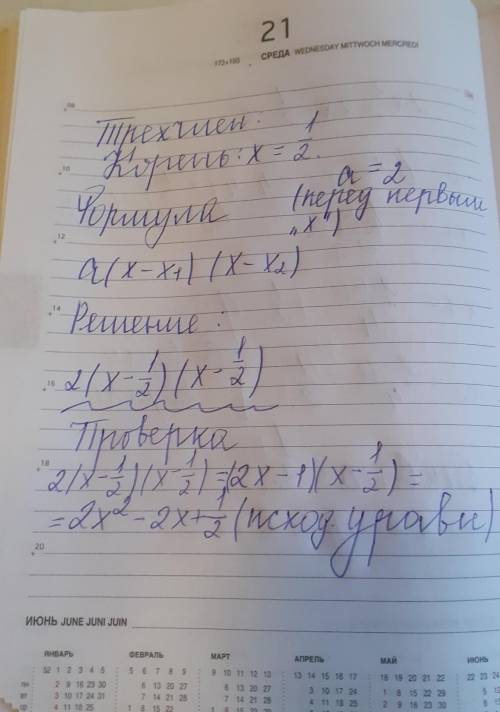 21
172+193
СРЕДА WEDNESDAY MITTWOCH MERCREDI
08
Трехчлен:
Корень: x = 1/2.
10
a = 2
Формула (перед первым „x“)
12
a(x-x1)(x-x2)
14
Решение:
16 2(x-1/2)(x-1/2)
Проверка
18
2(x-1/2)(x-1/2)=(2x-1)(x-1/2)=
=2x²-2x+1/2 (исход. уравн)
20
ИЮНЬ JUNE JUNI JUIN
ЯНВАРЬ ФЕВРАЛЬ МАРТ АПРЕЛЬ МАЙ ИЮНЬ
52 1 2 3 4 5 5 6 7 8 9 9 10 11 12 13 13 14 15 16 17 18 19 20 21 22 22 23 24
пн 2 9 16 23 30 6 13 20 27 6 13 20 27 3 10 17 24 1 8 15 22 29
вт 3 10 17 24 31 7 14 21 28 7 14 21 28 4 11 18 25 2 9 16 23 30
ср 4 11 18 25 1 8 15 22